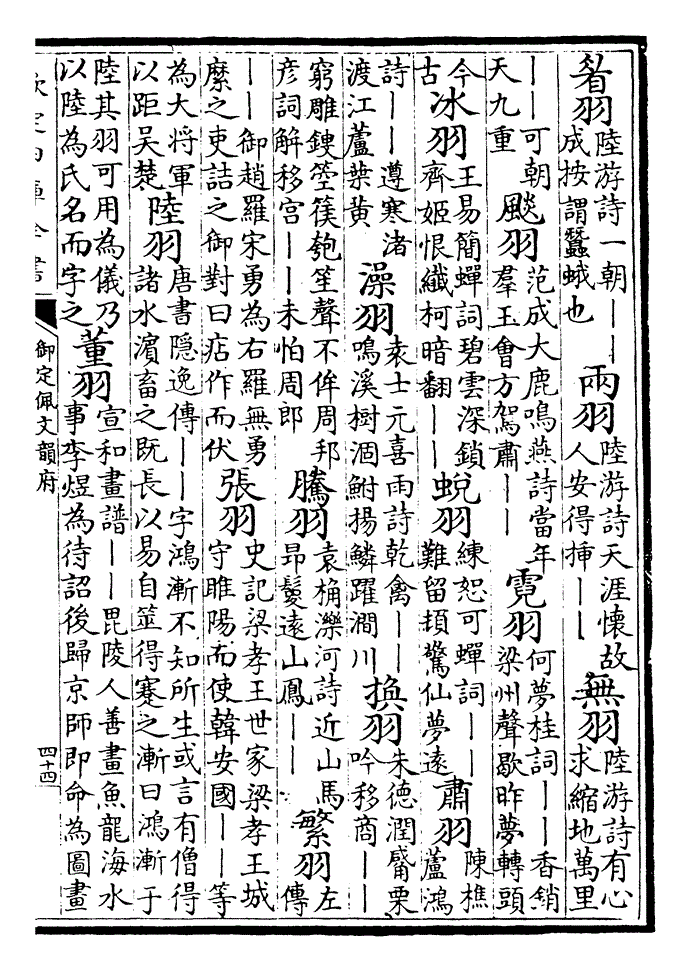 睂羽陸游詩一朝——成按謂蠶蛾也 兩羽陸游詩天涯懷故人安得揷—— 無羽陸游詩有心求縮地萬里
——可朝天九重 飈羽范成大鹿鳴燕詩當年羣玉會方駕肅—— 霓羽何夢桂詞——香銷梁州聲歇昨夢轉頭
今古 冰羽王易簡蟬詞碧雲深鎖齊姬恨纖柯暗翻—— 蛻羽練恕可蟬詞——難留頩驚仙夢遠 肅羽陳樵蘆鴻
詩——遵寒渚渡江蘆葉黄 澡羽袁士元喜雨詩乾禽——鳴溪樹涸鮒揚鱗躍澗川 換羽朱德潤觱栗吟移商——
窮雕鍥箜篌匏笙聲不侔周邦彦詞解移宫——未怕周郎 騰羽袁桷灤河詩近山馬昂鬉遠山鳳—— 繁羽左傳
——御趙羅宋勇為右羅無勇縻之吏詰之御對曰痁作而伏 張羽史記梁孝王世家梁孝王城守睢陽而使韓安國——等
為大將軍以距吳楚 陸羽唐書隠逸傳——字鴻漸不知所生或言有僧得諸水濵畜之既長以易自筮得蹇之漸曰鴻漸于
陸其羽可用為儀乃以陸為氏名而字之 董羽宣和畫譜——毘陵人善畫魚龍海水事李煜為待詔後歸京師即命為圖畫
欽定四庫全書
御定佩文韻府
四十四